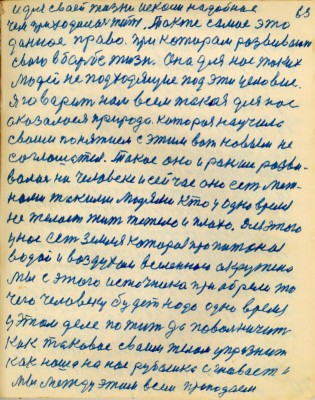 и для своей жизни искали надобное 63
чем приходилось жит. Также самое это
данное право. При котором развивают
свою в борбе жизнь. Она для нас таких
людей не подходящие под эти условие.
Я говарит нам всем такая для нас
оказалася природа. которая научила
своими понятием с этим вот новым не
соглашатся. Такое оно и раньше разви-
валася на человеке и сейчас оно ест меж-
нами такими людями кто у одно время
не желает жит тежело и плохо. Для этого
у нас ест земля которая пропитона
водой и воздухом вселенного окружена
мы с этого источника приобрели то
чего человеку будет надо одно время
у этом деле пожит да поволничит
как таковое своим телом упражнят
как наша на нас рубашка сгнивает и
мы между этим всем пропадаем